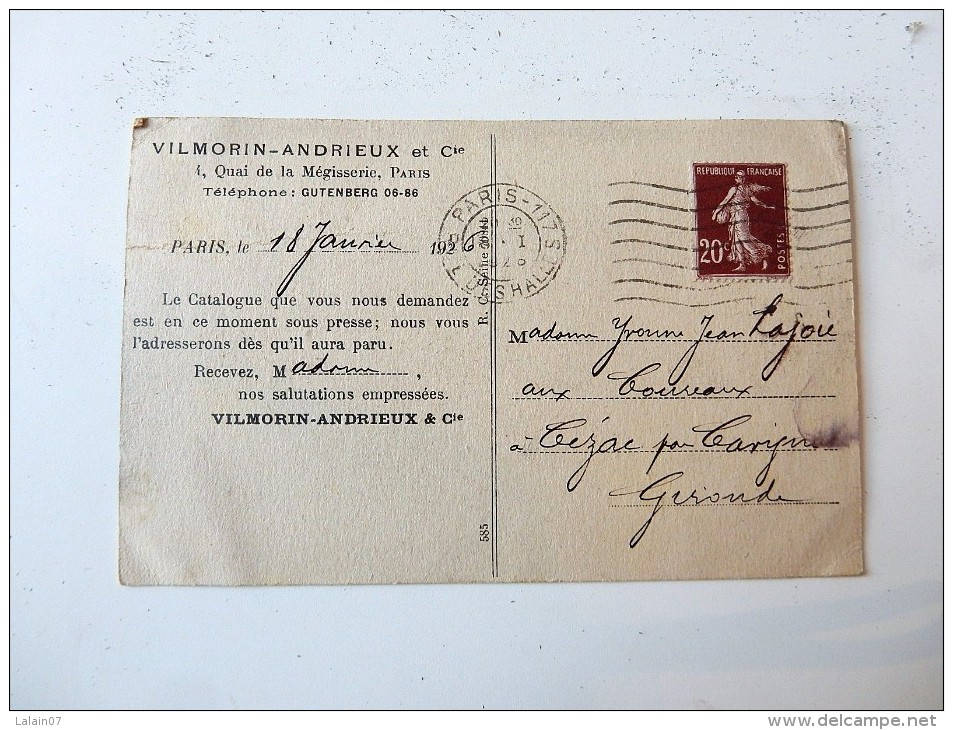 VILMORIN-ANDRIEUX et Cie
4, Quai de la Mégisserie, PARIS
Téléphone : GUTENBERG 06-86
PARIS, le 18 Janvier 1926
Le Catalogue que vous nous demandez
est en ce moment sous presse; nous vous
l'adresserons dès qu'il aura paru.
Recevez, Madame,
nos salutations empressées.
VILMORIN-ANDRIEUX & Cie
R. C. Seine
585
PARIS-117
HALLES
REPUBLIQUE FRANÇAISE
20c
POSTES
Madame Yvonne Jean Lajoie
aux
à Cézac par Cavignac
Gironde
Lalain07
www.delcampe.net